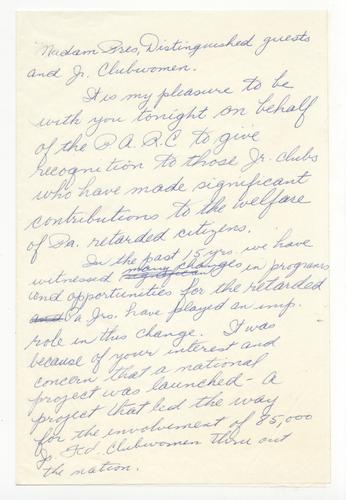 Madam Pres, Distinguished guests
and Jr. Clubwomen.
It is my pleasure to be
with you tonight on behalf
of the P.A.R.C to give
recognition to those Jr. clubs
who have made significant
contributions to the welfare
of Pa. retarded citizens.
In the past 15 yrs. we have
many changes
witnessed significant in programs
and opportunities for the retarded
and Pa Jrs. have played an imp.
role in this change. It was
because of your interest and
concern that a national
project was launched - A
project that led the way
for the involvement of 85,000
Jr. Fed. Clubwomen thru out
the nation.